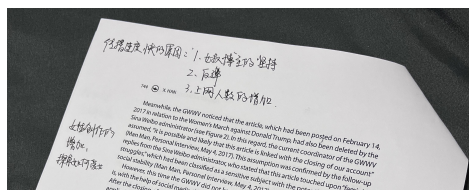 传播速度快的原因：1. 女权博主的坚持
2. 反弹
3. 上网人数的增加.
744 X. HAN
女性创作的
增加,
Meanwhile, the GWWV noticed that the article, which had been posted on February 14,
2017 in relation to the Women's March against Donald Trump, had also been deleted by the
Sina Weibo administrator (see Figure 2). In this regard, the current coordinator of the GWWV
assumed, "It is possible and likely that this article is linked with the closing of our account"
(Man Man, Personal Interview, May 4, 2017). This assumption was confirmed by the follow-up
replies from the Sina Weibo administrator, who stated that this article touched upon
struggles," which had been classified as a sensitive subject with the
social stability (Man Man, Personal Interview, May 4, 2017)
However, this time the GWWV did not
it, with the help of social
After the closing